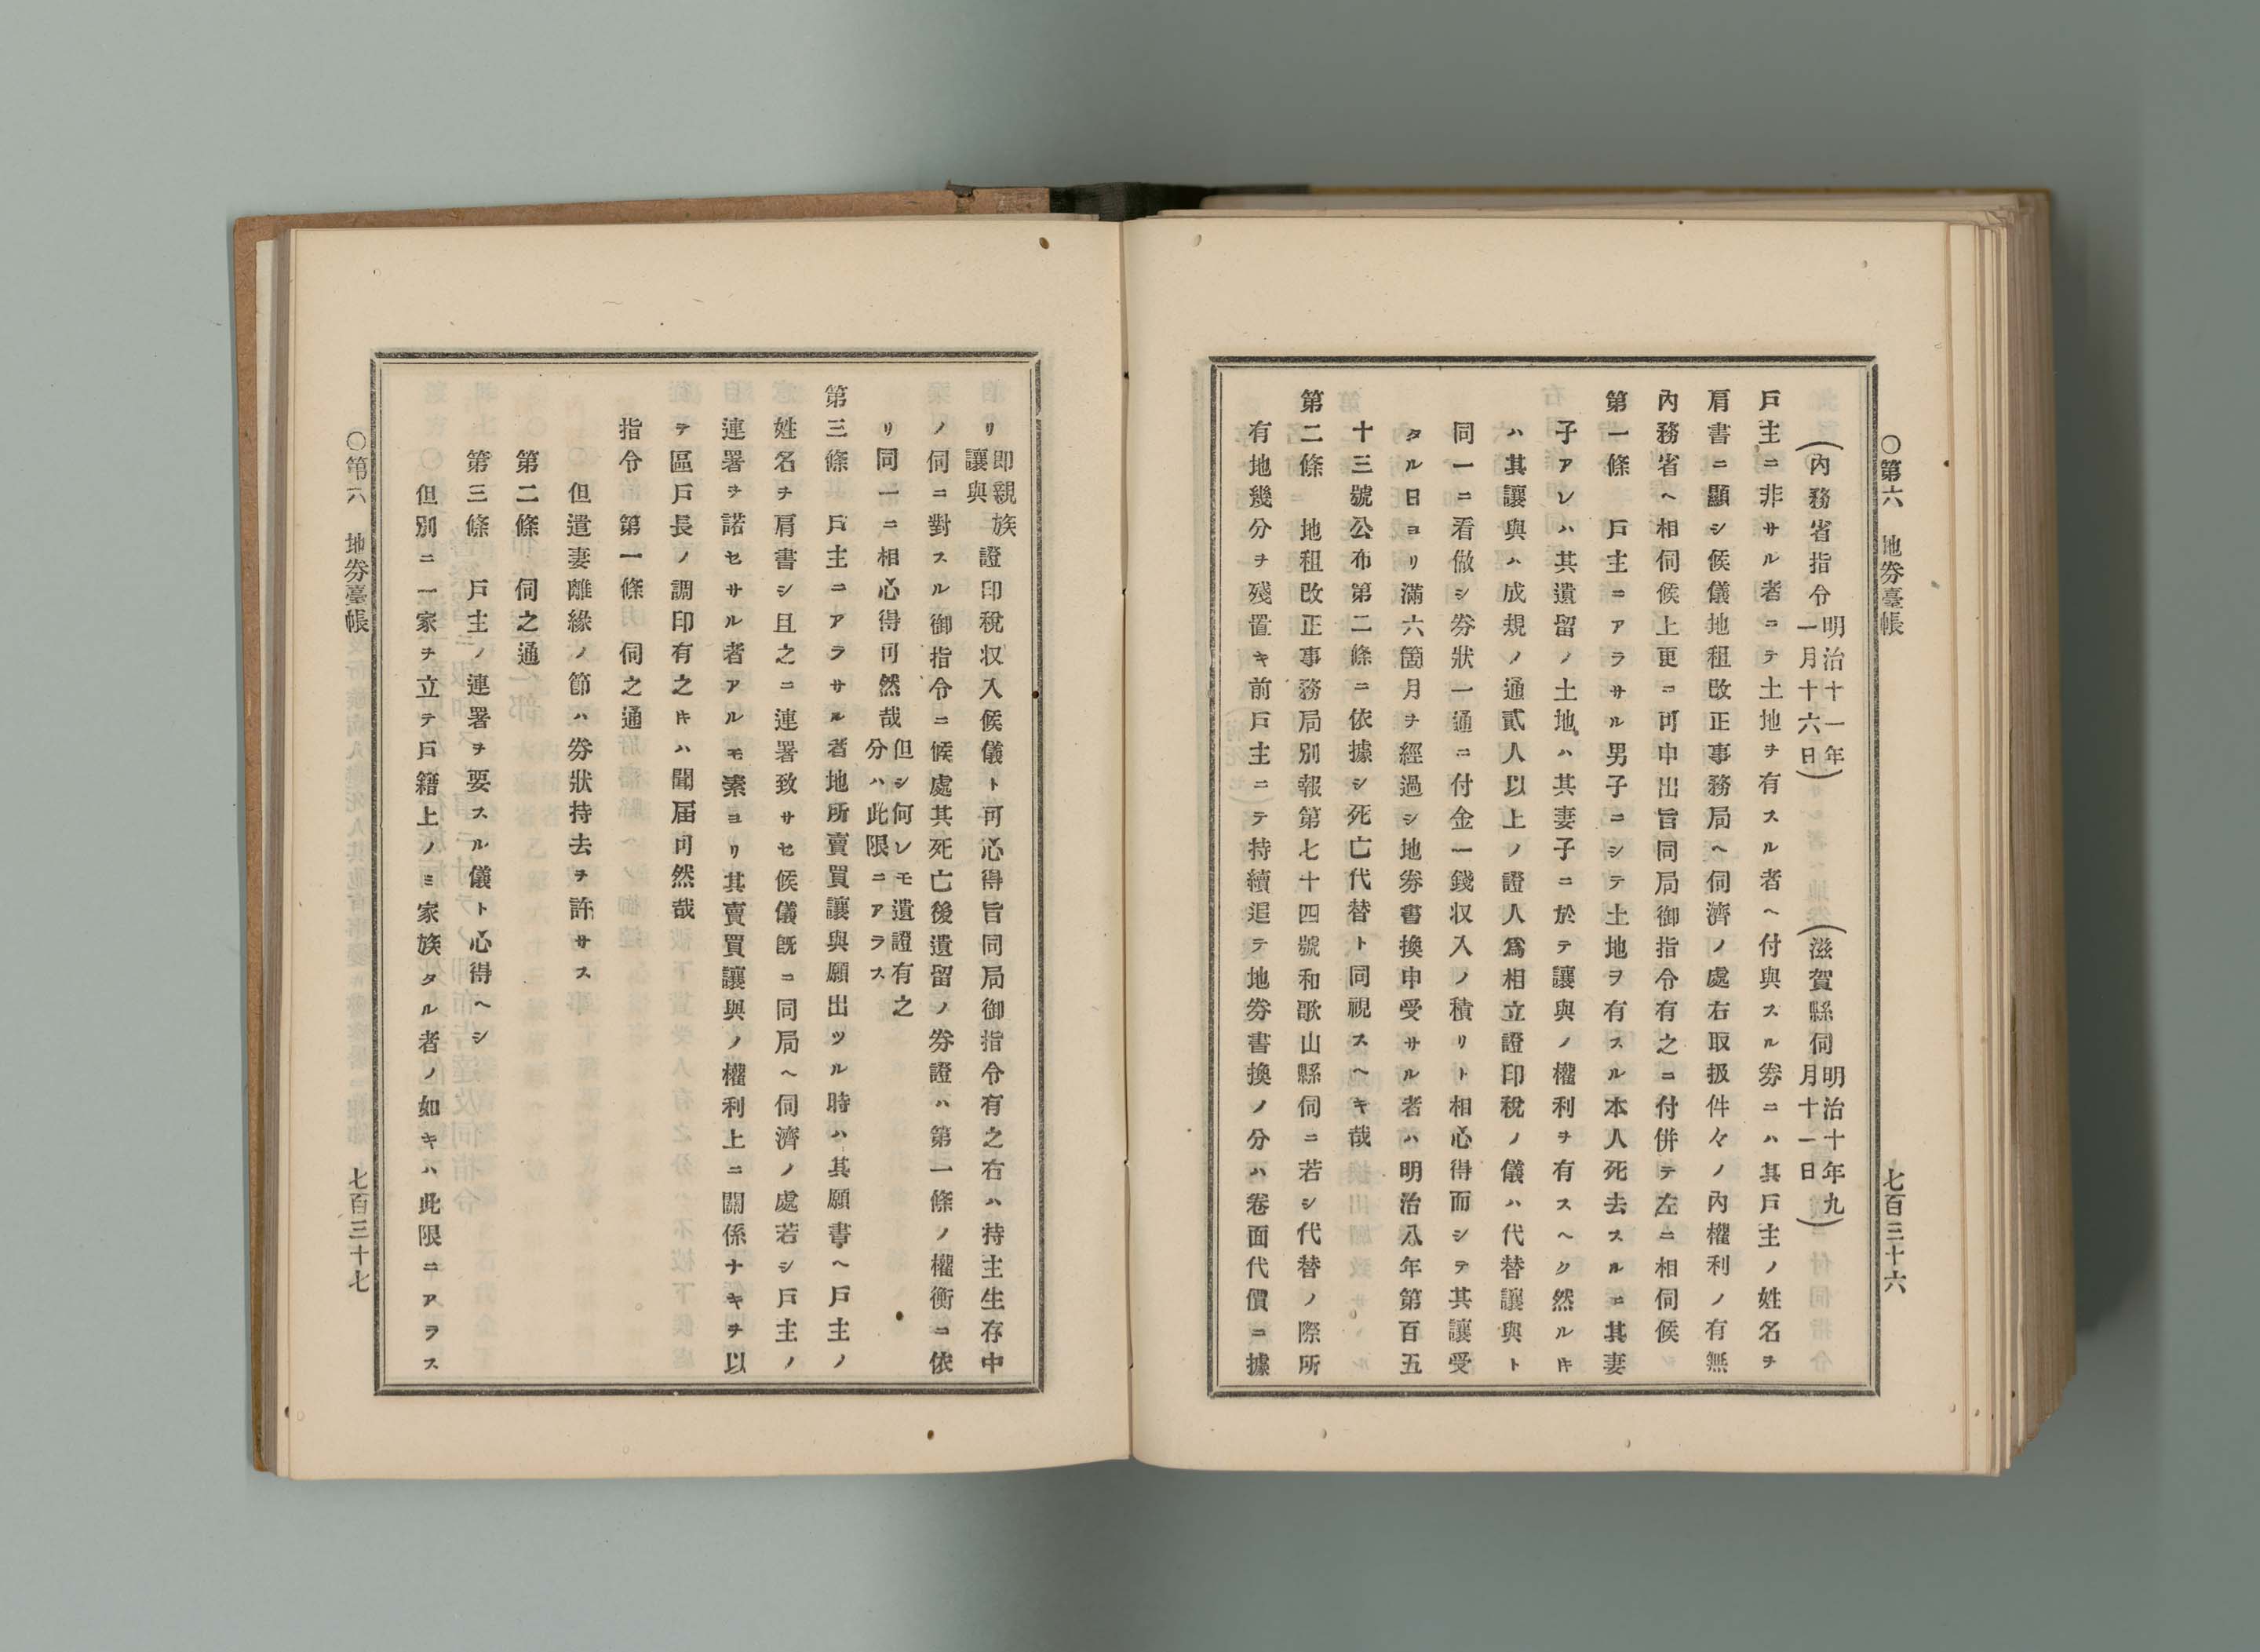 ○第六　地劵臺帳　七百三十六
(內務省指令 明治十一年一月十六日) (滋賀縣伺 明治十年九月十一日)
戶主ニ非サル者ニテ土地ヲ有スル者ヘ付與スル劵ニハ其戶主ノ姓名ヲ
肩書ニ顯シ候儀地租改正事務局ヘ伺濟ノ處右取扱件々ノ內權利ノ有無
內務省ヘ相伺候上更ニ可申出旨同局御指令有之ニ付併テ左ニ相伺候
第一條　戶主ニアラサル男子ニシテ土地ヲ有スル本人死去スルニ其妻
子アレハ其遺留ノ土地ハ其妻子ニ於テ讓與ノ權利ヲ有スヘク然ルキ
ハ其讓與ハ成規ノ通貳人以上ノ證人爲相立證印稅ノ儀ハ代替讓與ト
同一ニ看做シ劵狀一通ニ付金一錢収入ノ積リト相心得而シテ其讓受
タル日ヨリ滿六箇月ヲ經過シ地劵書換申受サル者ハ明治八年第百五
十三號公布第二條ニ依據シ死亡代替ト同視スヘキ哉
第二條　地租改正事務局別報第七十四號和歌山縣伺ニ若シ代替ノ際所
有地幾分ヲ殘置キ前戶主ニテ持續追テ地劵書換ノ分ハ卷面代價ニ據
リ即親族讓與證印稅収入候儀ト可心得旨同局御指令有之右ハ持主生存中
ノ伺ニ對スル御指令ニ候處其死亡後遺留ノ劵證ハ第一條ノ權衡ニ依
リ同一ニ相心得可然哉 但シ何レモ遺證有之分ハ此限ニアラス
第三條　戶主ニアラサル者地所賣買讓與願出ツル時ハ其願書ヘ戶主ノ
姓名ヲ肩書シ且之ニ連署致サセ候儀旣ニ同局ヘ伺濟ノ處若シ戶主ノ
連署ヲ諾セサル者アルモ素ヨリ其賣買讓與ノ權利上ニ關係ナキヲ以
テ區戶長ノ調印有之キハ聞屆可然哉
指令　第一條　伺之通
但遺妻離緣ノ節ハ劵狀持去ヲ許サス
第二條　伺之通
第三條　戶主ノ連署ヲ要スル儀ト心得ヘシ
但別ニ一家ヲ立テ戶籍上ノミ家族タル者ノ如キハ此限ニアラス
○第六　地劵臺帳　七百三十七